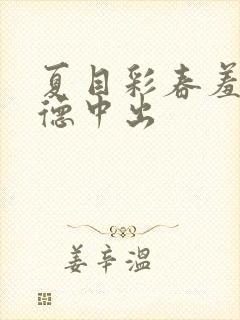 夏目彩春羞
德中出
姜辛温